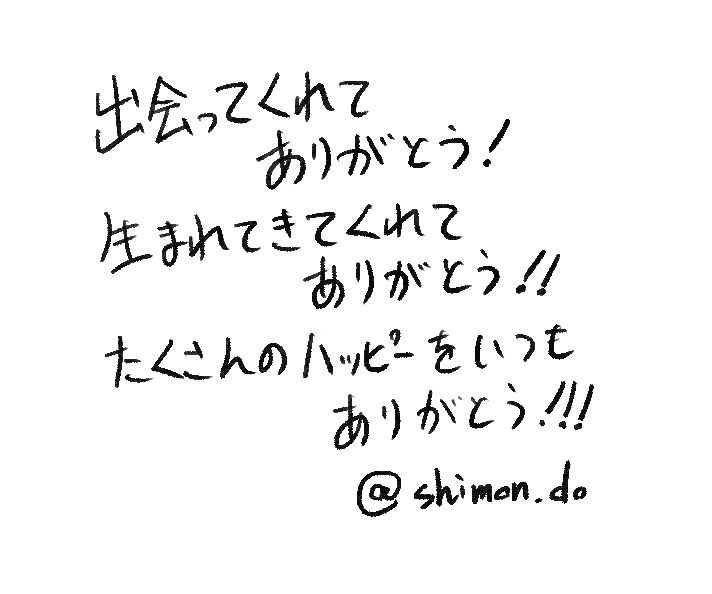 出会ってくれて
ありがとう!
生まれてきてくれて
ありがとう!!
たくさんのハッピーをいつも
ありがとう!!!
@shimon.do